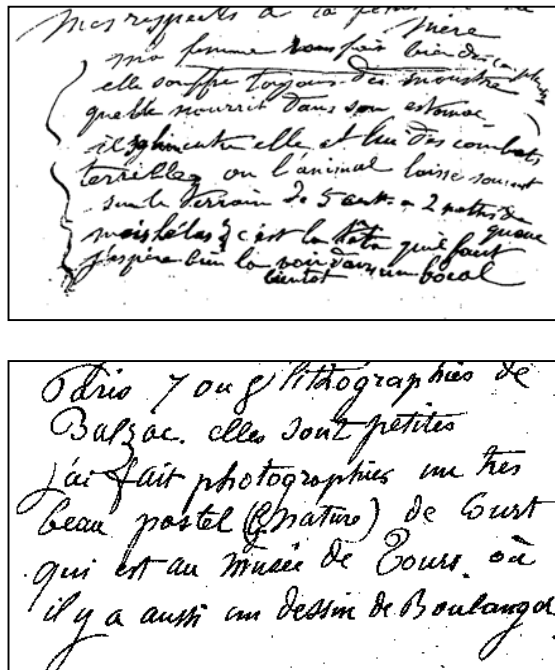 Mes respects à la
mère
ma femme vous fait bien dire
elle souffre toujours des monstre
quelle nourrit dans son estomac
entre elle et lui des combats
terribles ou l'animal laisse souvent
sur le terrain de 5 cent. a 2 de
mais hélas c'est la tête qu'il faut
queue
j'espère bien la voir dans un bocal
bientot
Paris 7 ou 8 lithographies de
Balzac. elles sont petites
j'ai fait photographier un très
beau pastel (g. nature) de Court
qui est au musée de Tours. où
il y a aussi un dessin de Boulanger